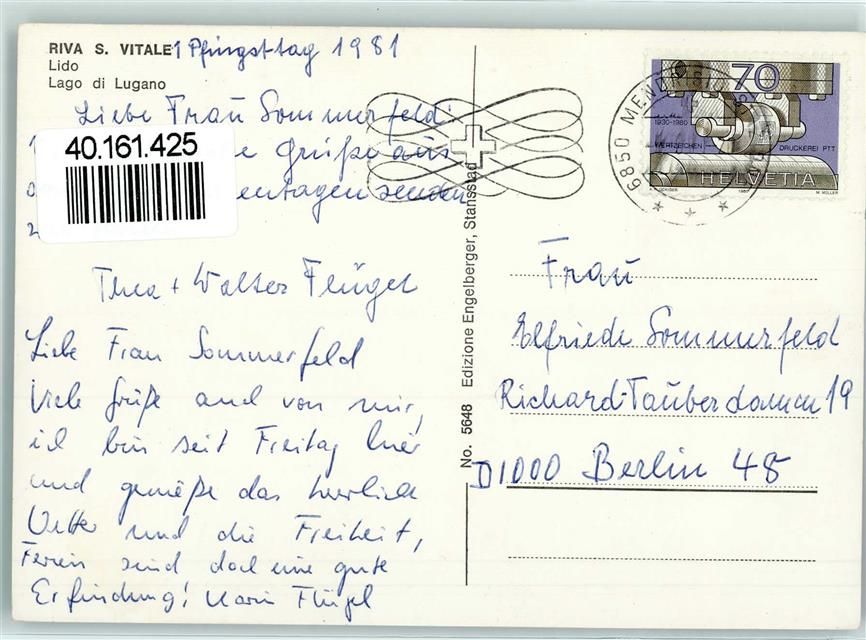 RIVA S. VITALE 1 Pfingsttag 1981
Lido
Lago di Lugano
Liebe Frau Sommerfeld!
40.161.425
Grüße aus
senden
Thea + Walter Flügel
Liebe Frau Sommerfeld
Viele Grüße auch von mir,
ich bin seit Freitag hier
und genieße das herrliche
Wetter und die Freiheit,
Ferien sind doch eine gute
Erfindung! Karin Flügel
No. 5648 Edizione Engelberger, Stansstad
6850 MENDRISIO
70
1930-1980
WERTZEICHEN DRUCKEREI PTT
HELVETIA
M. MÜLLER
Frau
Elfriede Sommerfeld
Richard-Tauberdamm 19
D1000 Berlin 48